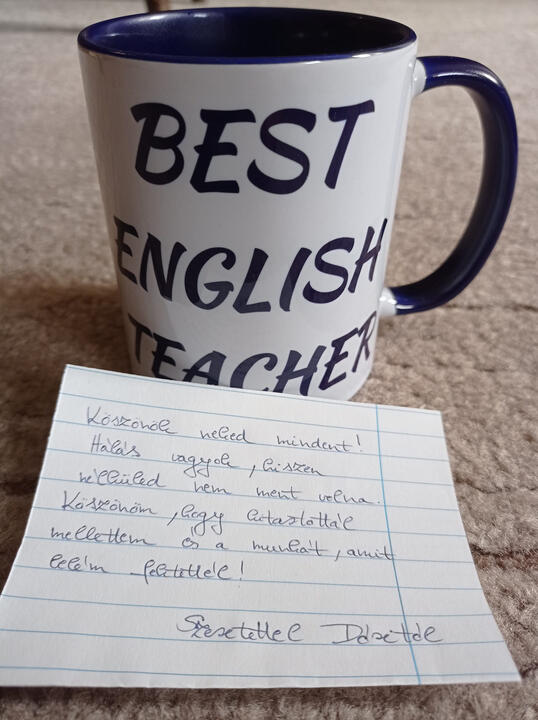 BEST
ENGLISH
TEACHER
Köszönök neked mindent!
Hálás vagyok, hiszen
nélküled nem ment volna.
Köszönöm, hogy kitartottál
mellettem és a munkát, amit
belém fektettél!
Szeretettel